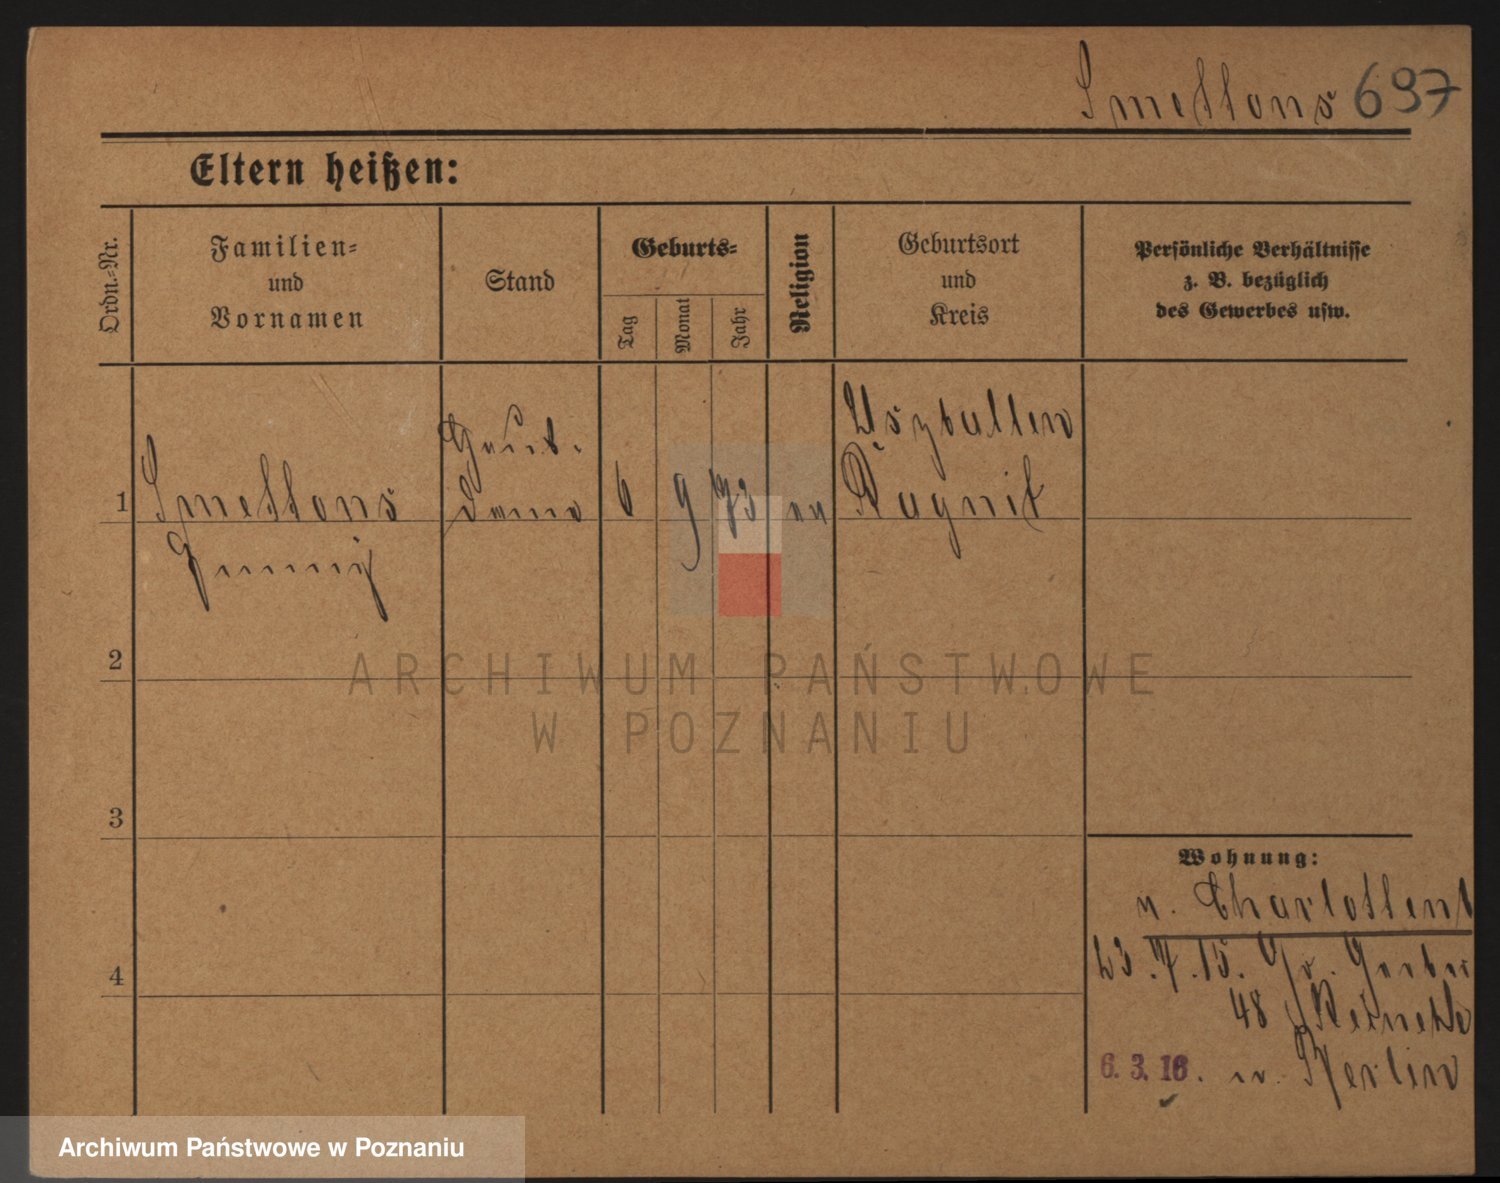 Smettons 697
Eltern heißen:
Ordn.-Nr.
Familien-
und
Vornamen
Stand
Geburts-
Tag
Monat
Jahr
Religion
Geburtsort
und
Kreis
Persönliche Verhältnisse
z. B. bezüglich
des Gewerbes usw.
1
Smettons
6
9
73
ev
Uszballen
Ragnit
2
3
4
Wohnung:
n. Charlottenb
23.7.15. Gr. Gerber
48
6. 3. 16. n. Berlin
ARCHIWUM PAŃSTWOWE
W POZNANIU
Archiwum Państwowe w Poznaniu